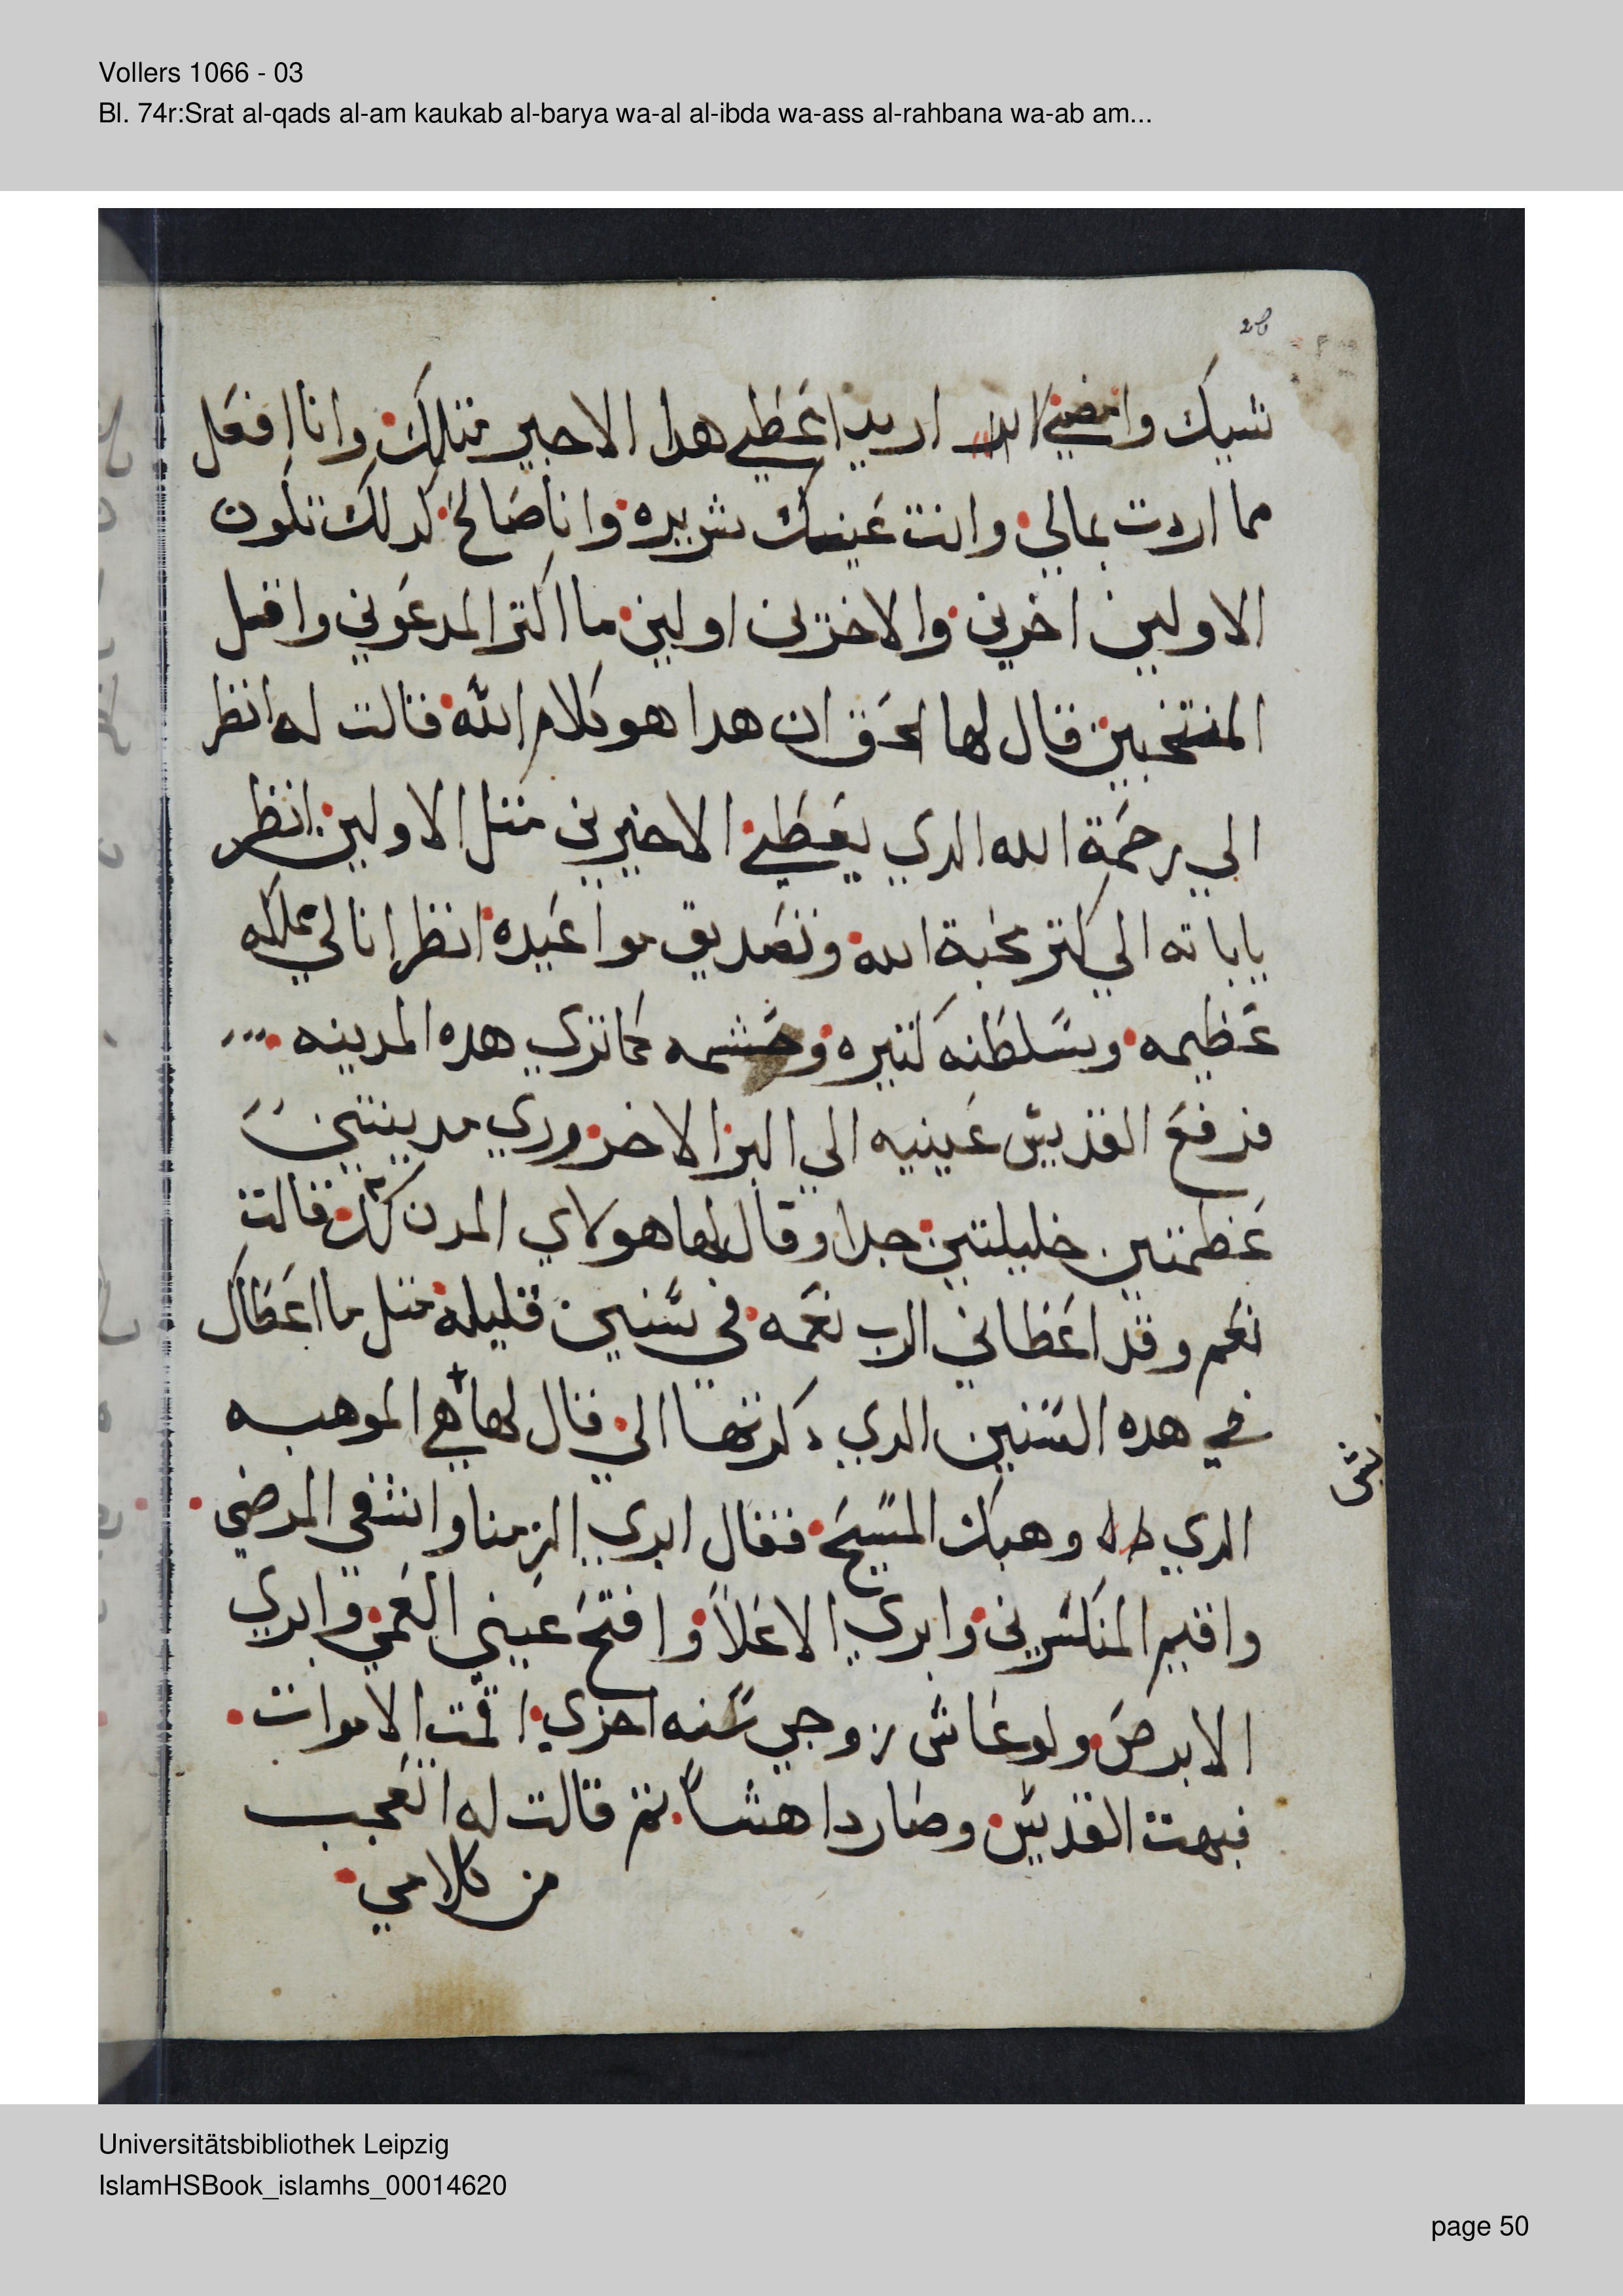 Vollers 1066 - 03
Bl. 74r:Srat al-qads al-am kaukab al-barya wa-al al-ibda wa-ass al-rahbana wa-ab am...
28
شيك وامضي اريد اعطي هدا الاخير متلك وانا افعل
مما اردت بمالي وانت عينيك شريره وانا صالح كدلك تكون
الاولين اخرين والاخرين اولين ما اكتر المدعوني واقل
المنتخبين قال لها الحق ان هدا هو كلام الله قالت له انظر
الي رحمة الله الدي يعطي الاخيرين متل الاولين انظر
ياباته الي كتر محبة الله وتصديق مواعيده انظر انا لي مملكه
عظيمه وسلطنه كتيره وحشمه كما تري هده المدينه
فرفع القديس عينيه الي البر الاخر وري مدينتين
عظمتين جليلتين جدا وقال لها هولاي المدن لك قالت
نعم وقد اعطاني الرب نعمه في سنين قليله متل ما اعطاك
في هده السنين الدي دكرتها الي قال لها هي الموهبه
الدي وهبك المسيح فقال ابري الزمنا واشفي المرضي
واقيم المنكسرين وابري الاعلاّ وافتح عيني العمي وابري
الابرص ولو عاش زوجي سنه اخري اقمت الاموات
فبهت القديس وصار داهشاً تم قالت له اتعجب
من كلامي
Universitätsbibliothek Leipzig
IslamHSBook_islamhs_00014620
page 50